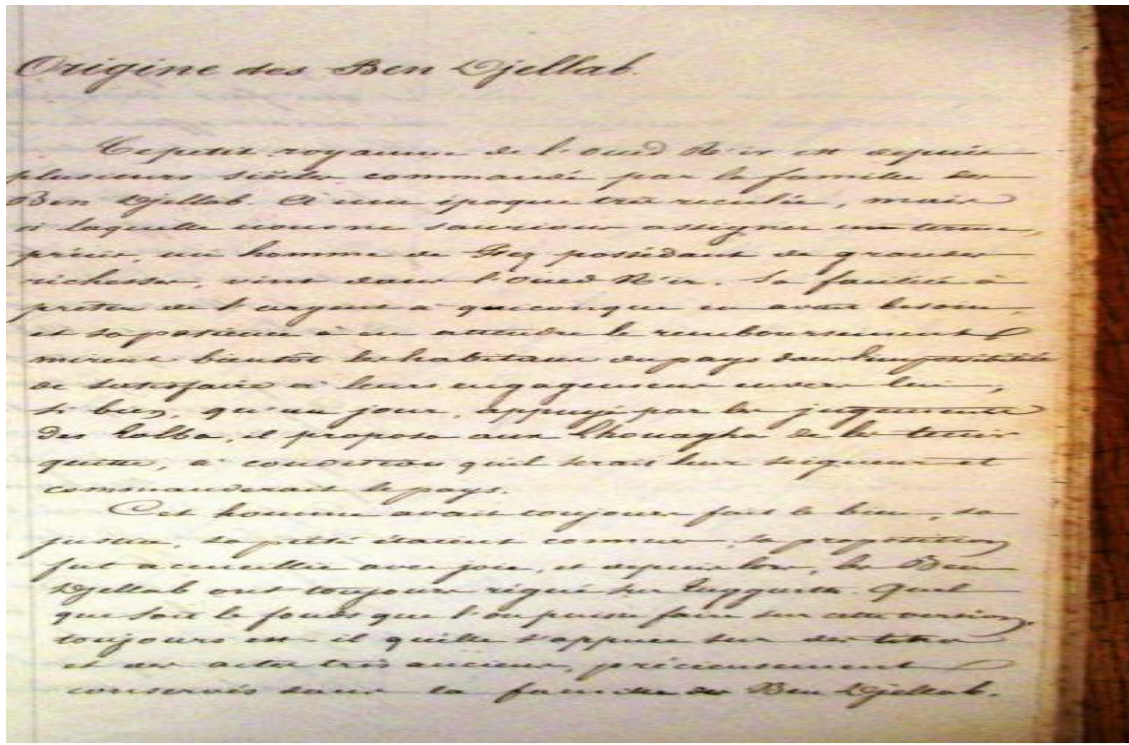 Origine des Ben Djellab.
Ce petit royaume de l'oued R'ir est depuis
plusieurs siècles commandé par la famille des
Ben Djellab. A une époque très reculée, mais
à laquelle nous ne saurions assigner un terme
précis, un homme de Fez possédant de grandes
richesses, vint dans l'Oued R'ir. Sa facilité à
prêter de l'argent à quiconque en avait besoin,
et sa patience à en attendre le remboursement
mirent bientôt les habitans du pays dans l'impossibilité
de satisfaire à leurs engagemens envers lui,
si bien, qu'un jour, appuyé par les jugements
des tolba, il proposa aux de les tenir
quittes, à condition qu'il serait leur seigneur et
commanderait le pays.
Cet homme avait toujours fait le bien, sa
justice, sa piété étaient connues, sa proposition
fut accueillie avec joie, et depuis lors, les Ben
Djellab ont toujours régné sur Tuggurth. Quel
que soit le fonds que l'on puisse faire sur cette version,
toujours est-il qu'elle s'appuie sur des titres
et des actes très anciens, précieusement
conservés dans la famille des Ben Djellab.